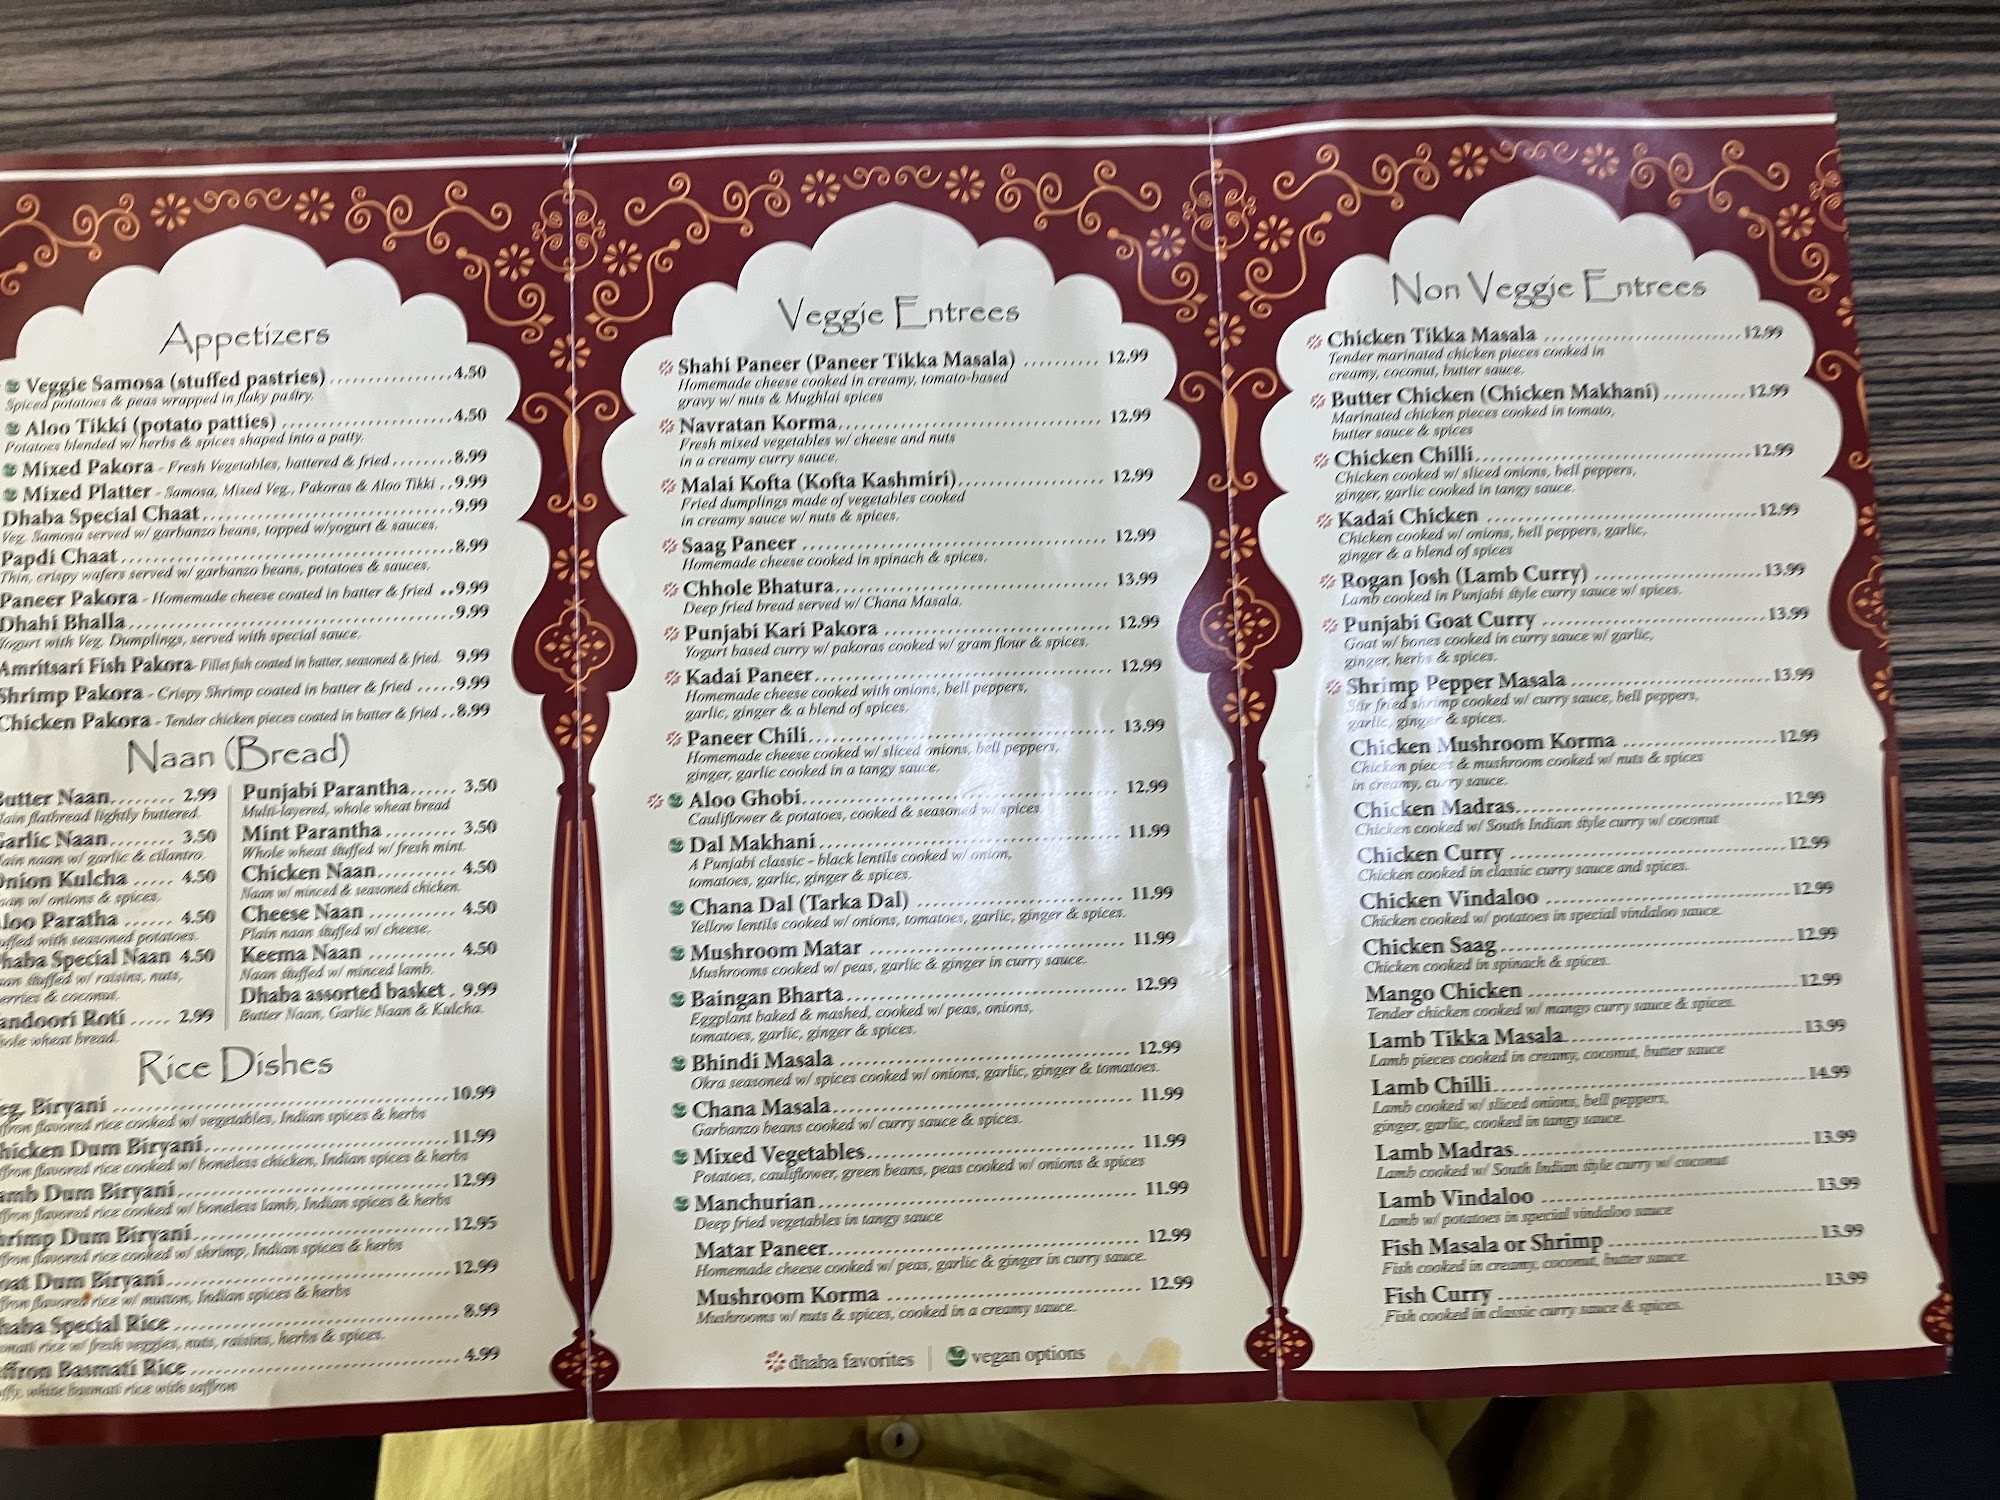 Appetizers
Veggie Samosa (stuffed pastries) 4.50
Spiced potatoes & peas wrapped in flaky pastry.
Aloo Tikki (potato patties) 4.50
Potatoes blended w/ herbs & spices shaped into a patty.
Mixed Pakora - Fresh Vegetables, battered & fried 8.99
Mixed Platter - Samosa, Mixed Veg., Pakoras & Aloo Tikki 9.99
Dhaba Special Chaat 9.99
Veg. Samosa served w/ garbanzo beans, topped w/yogurt & sauces.
Papdi Chaat 8.99
Thin, crispy wafers served w/ garbanzo beans, potatoes & sauces.
Paneer Pakora - Homemade cheese coated in batter & fried 9.99
Dhahi Bhalla 9.99
Yogurt with Veg. Dumplings, served with special sauce.
Amritsari Fish Pakora- Fillet fish coated in batter, seasoned & fried. 9.99
Shrimp Pakora - Crispy Shrimp coated in batter & fried 9.99
Chicken Pakora - Tender chicken pieces coated in batter & fried 8.99
Naan (Bread)
Naan 2.99
flatbread lightly buttered.
Naan 3.50
naan w/ garlic & cilantro.
Kulcha 4.50
w/ onions & spices.
Paratha 4.50
with seasoned potatoes.
Special Naan 4.50
stuffed w/ raisins, nuts,
& coconut.
Roti 2.99
wheat bread.
Punjabi Parantha 3.50
Multi-layered, whole wheat bread
Mint Parantha 3.50
Whole wheat stuffed w/ fresh mint.
Chicken Naan 4.50
Naan w/ minced & seasoned chicken.
Cheese Naan 4.50
Plain naan stuffed w/ cheese.
Keema Naan 4.50
Naan stuffed w/ minced lamb.
Dhaba assorted basket 9.99
Butter Naan, Garlic Naan & Kulcha.
Rice Dishes
Biryani 10.99
flavored rice cooked w/ vegetables, Indian spices & herbs
Dum Biryani 11.99
flavored rice cooked w/ boneless chicken, Indian spices & herbs
Dum Biryani 12.99
flavored rice cooked w/ boneless lamb, Indian spices & herbs
Dum Biryani 12.95
flavored rice cooked w/ shrimp, Indian spices & herbs
Dum Biryani 12.99
flavored rice w/ mutton, Indian spices & herbs
Special Rice 8.99
rice w/ fresh veggies, nuts, raisins, herbs & spices.
Basmati Rice 4.99
white basmati rice with saffron
Veggie Entrees
Shahi Paneer (Paneer Tikka Masala) 12.99
Homemade cheese cooked in creamy, tomato-based
gravy w/ nuts & Mughlai spices
Navratan Korma 12.99
Fresh mixed vegetables w/ cheese and nuts
in a creamy curry sauce.
Malai Kofta (Kofta Kashmiri) 12.99
Fried dumplings made of vegetables cooked
in creamy sauce w/ nuts & spices.
Saag Paneer 12.99
Homemade cheese cooked in spinach & spices.
Chhole Bhatura 13.99
Deep fried bread served w/ Chana Masala.
Punjabi Kari Pakora 12.99
Yogurt based curry w/ pakoras cooked w/ gram flour & spices.
Kadai Paneer 12.99
Homemade cheese cooked with onions, bell peppers,
garlic, ginger & a blend of spices.
Paneer Chili 13.99
Homemade cheese cooked w/ sliced onions, bell peppers,
ginger, garlic cooked in a tangy sauce.
Aloo Ghobi 12.99
Cauliflower & potatoes, cooked & seasoned w/ spices.
Dal Makhani 11.99
A Punjabi classic - black lentils cooked w/ onion,
tomatoes, garlic, ginger & spices.
Chana Dal (Tarka Dal) 11.99
Yellow lentils cooked w/ onions, tomatoes, garlic, ginger & spices.
Mushroom Matar 11.99
Mushrooms cooked w/ peas, garlic & ginger in curry sauce.
Baingan Bharta 12.99
Eggplant baked & mashed, cooked w/ peas, onions,
tomatoes, garlic, ginger & spices.
Bhindi Masala 12.99
Okra seasoned w/ spices cooked w/ onions, garlic, ginger & tomatoes.
Chana Masala 11.99
Garbanzo beans cooked w/ curry sauce & spices.
Mixed Vegetables 11.99
Potatoes, cauliflower, green beans, peas cooked w/ onions & spices
Manchurian 11.99
Deep fried vegetables in tangy sauce
Matar Paneer 12.99
Homemade cheese cooked w/ peas, garlic & ginger in curry sauce.
Mushroom Korma 12.99
Mushrooms w/ nuts & spices, cooked in a creamy sauce.
dhaba favorites | vegan options
Non Veggie Entrees
Chicken Tikka Masala 12.99
Tender marinated chicken pieces cooked in
creamy, coconut, butter sauce.
Butter Chicken (Chicken Makhani) 12.99
Marinated chicken pieces cooked in tomato,
butter sauce & spices
Chicken Chilli 12.99
Chicken cooked w/ sliced onions, bell peppers,
ginger, garlic cooked in tangy sauce.
Kadai Chicken 12.99
Chicken cooked w/ onions, bell peppers, garlic,
ginger & a blend of spices
Rogan Josh (Lamb Curry) 13.99
Lamb cooked in Punjabi style curry sauce w/ spices.
Punjabi Goat Curry 13.99
Goat w/ bones cooked in curry sauce w/ garlic,
ginger, herbs & spices.
Shrimp Pepper Masala 13.99
Stir fried shrimp cooked w/ curry sauce, bell peppers,
garlic, ginger & spices.
Chicken Mushroom Korma 12.99
Chicken pieces & mushroom cooked w/ nuts & spices
in creamy, curry sauce.
Chicken Madras 12.99
Chicken cooked w/ South Indian style curry w/ coconut
Chicken Curry 12.99
Chicken cooked in classic curry sauce and spices.
Chicken Vindaloo 12.99
Chicken cooked w/ potatoes in special vindaloo sauce.
Chicken Saag 12.99
Chicken cooked in spinach & spices.
Mango Chicken 12.99
Tender chicken cooked w/ mango curry sauce & spices.
Lamb Tikka Masala 13.99
Lamb pieces cooked in creamy, coconut, butter sauce
Lamb Chilli 14.99
Lamb cooked w/ sliced onions, bell peppers,
ginger, garlic, cooked in tangy sauce.
Lamb Madras 13.99
Lamb cooked w/ South Indian style curry w/ coconut
Lamb Vindaloo 13.99
Lamb w/ potatoes in special vindaloo sauce
Fish Masala or Shrimp 13.99
Fish cooked in creamy, coconut, butter sauce.
Fish Curry 13.99
Fish cooked in classic curry sauce & spices.